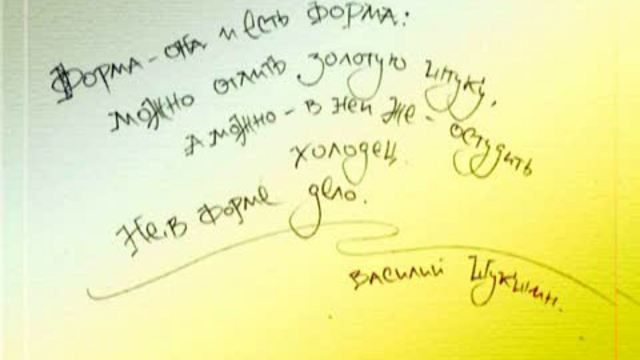 Форма – она и есть форма:
можно отлить золотую штуку,
а можно – в ней же – остудить
холодец.
Не в форме дело.
Василий Шукшин.